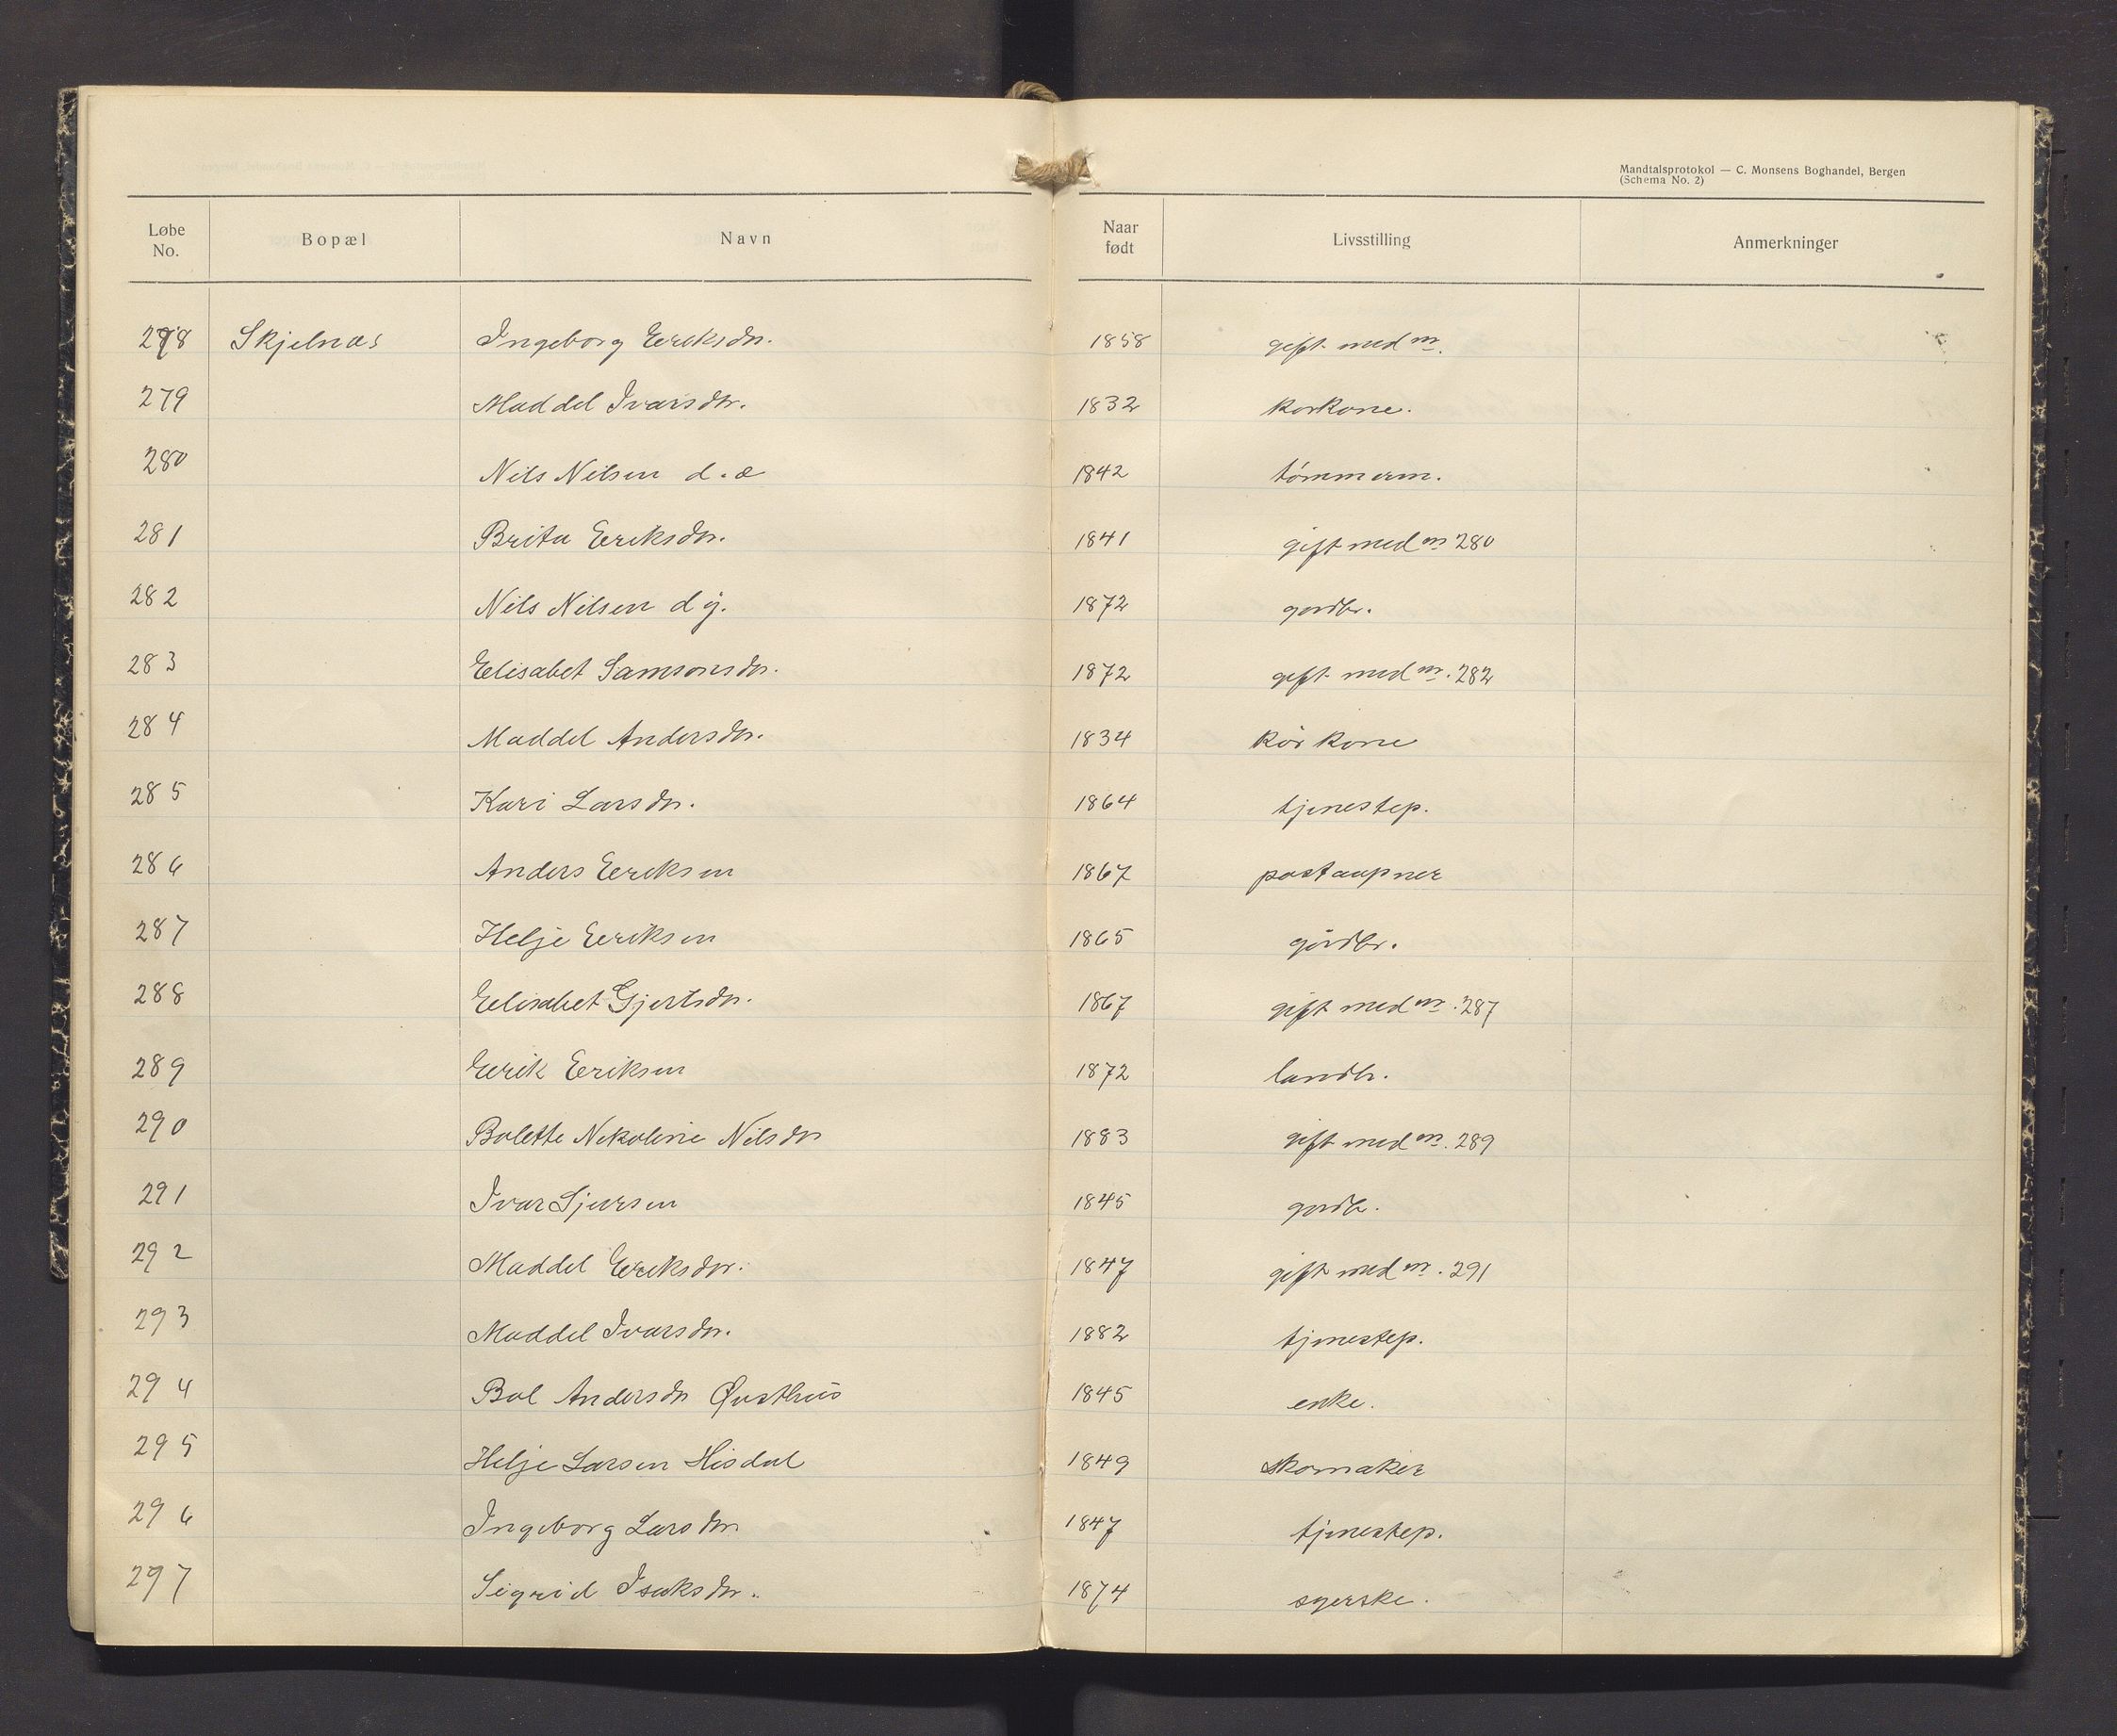 Mandtalsprotokol — C. Monsens Boghandel, Bergen
(Schema No. 2)
Løbe No. Bopæl Navn Naar født Livsstilling Anmerkninger
278 Skjelnæs Ingeborg Eriksdr. 1858 gift med no.
279 Maddel Ivarsdtr. 1832 korkone.
280 Nils Nilsen d.æ 1842 tømmerm.
281 Brita Eriksdr. 1841 gift med no 280
282 Nils Nilsen d.y. 1872 gardbr.
283 Elisabet Samsonsdr. 1872 gift med no. 282
284 Maddel Andersdr. 1834 kårkone
285 Kari Larsdr. 1864 tjenestep.
286 Anders Eriksen 1867 postaapner
287 Helje Eriksen 1865 gårdbr.
288 Elisabet Gjertsdr. 1867 gift med no. 287
289 Erik Eriksen 1872 landh.
290 Bolette Nikoline Nilsdr 1883 gift med no. 289
291 Ivar Sjursen 1845 gardbr.
292 Maddel Eriksdr. 1847 gift med no. 291
293 Maddel Ivarsdr. 1882 tjenestep.
294 Bol Andersdr Øvsthus 1845 enke.
295 Helje Larsen Hisdal 1849 skomaker
296 Ingeborg Larsdr 1847 tjenestep.
297 Sigrid Isaksdr. 1874 syerske.